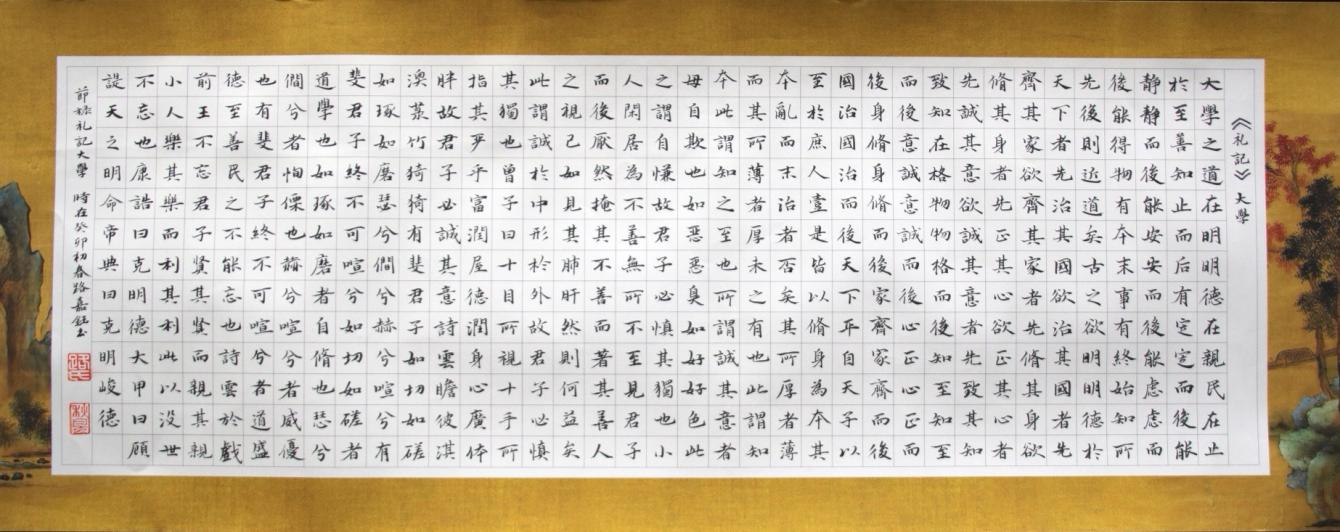 《礼記》大學
大學之道在明明德在親民在止
於至善知止而后有定定而後能
靜靜而後能安安而後能慮慮而
後能得物有本末事有終始知所
先後則近道矣古之欲明明德於
天下者先治其國欲治其國者先
齊其家欲齊其家者先脩其身欲
脩其身者先正其心欲正其心者
先誠其意欲誠其意者先致其知
致知在格物物格而後知至知至
而後意誠意誠而後心正心正而
後身脩身脩而後家齊家齊而後
國治國治而後天下平自天子以
至於庶人壹是皆以脩身為本其
本亂而末治者否矣其所厚者薄
而其所薄者厚未之有也此謂知
本此謂知之至也所謂誠其意者
毋自欺也如惡惡臭如好好色此
之謂自慊故君子必慎其獨也小
人閑居為不善無所不至見君子
而後厭然掩其不善而著其善人
之視己如見其肺肝然則何益矣
此謂誠於中形於外故君子必慎
其獨也曾子曰十目所視十手所
指其嚴乎富潤屋德潤身心廣体
胖故君子必誠其意詩雲瞻彼淇
澳菉竹猗猗有斐君子如切如磋
如琢如磨瑟兮僩兮赫兮喧兮有
斐君子終不可喧兮如切如磋者
道學也如琢如磨者自脩也瑟兮
僩兮者恂慄也赫兮喧兮者威優
也有斐君子終不可喧兮者道盛
德至善民之不能忘也詩雲於戲
前王不忘君子賢其賢而親其親
小人樂其樂而利其利此以没世
不忘也康誥曰克明德大甲曰顧
諟天之明命帝典曰克明峻德
節錄礼記大學 時在癸卯初春路嘉鈺書